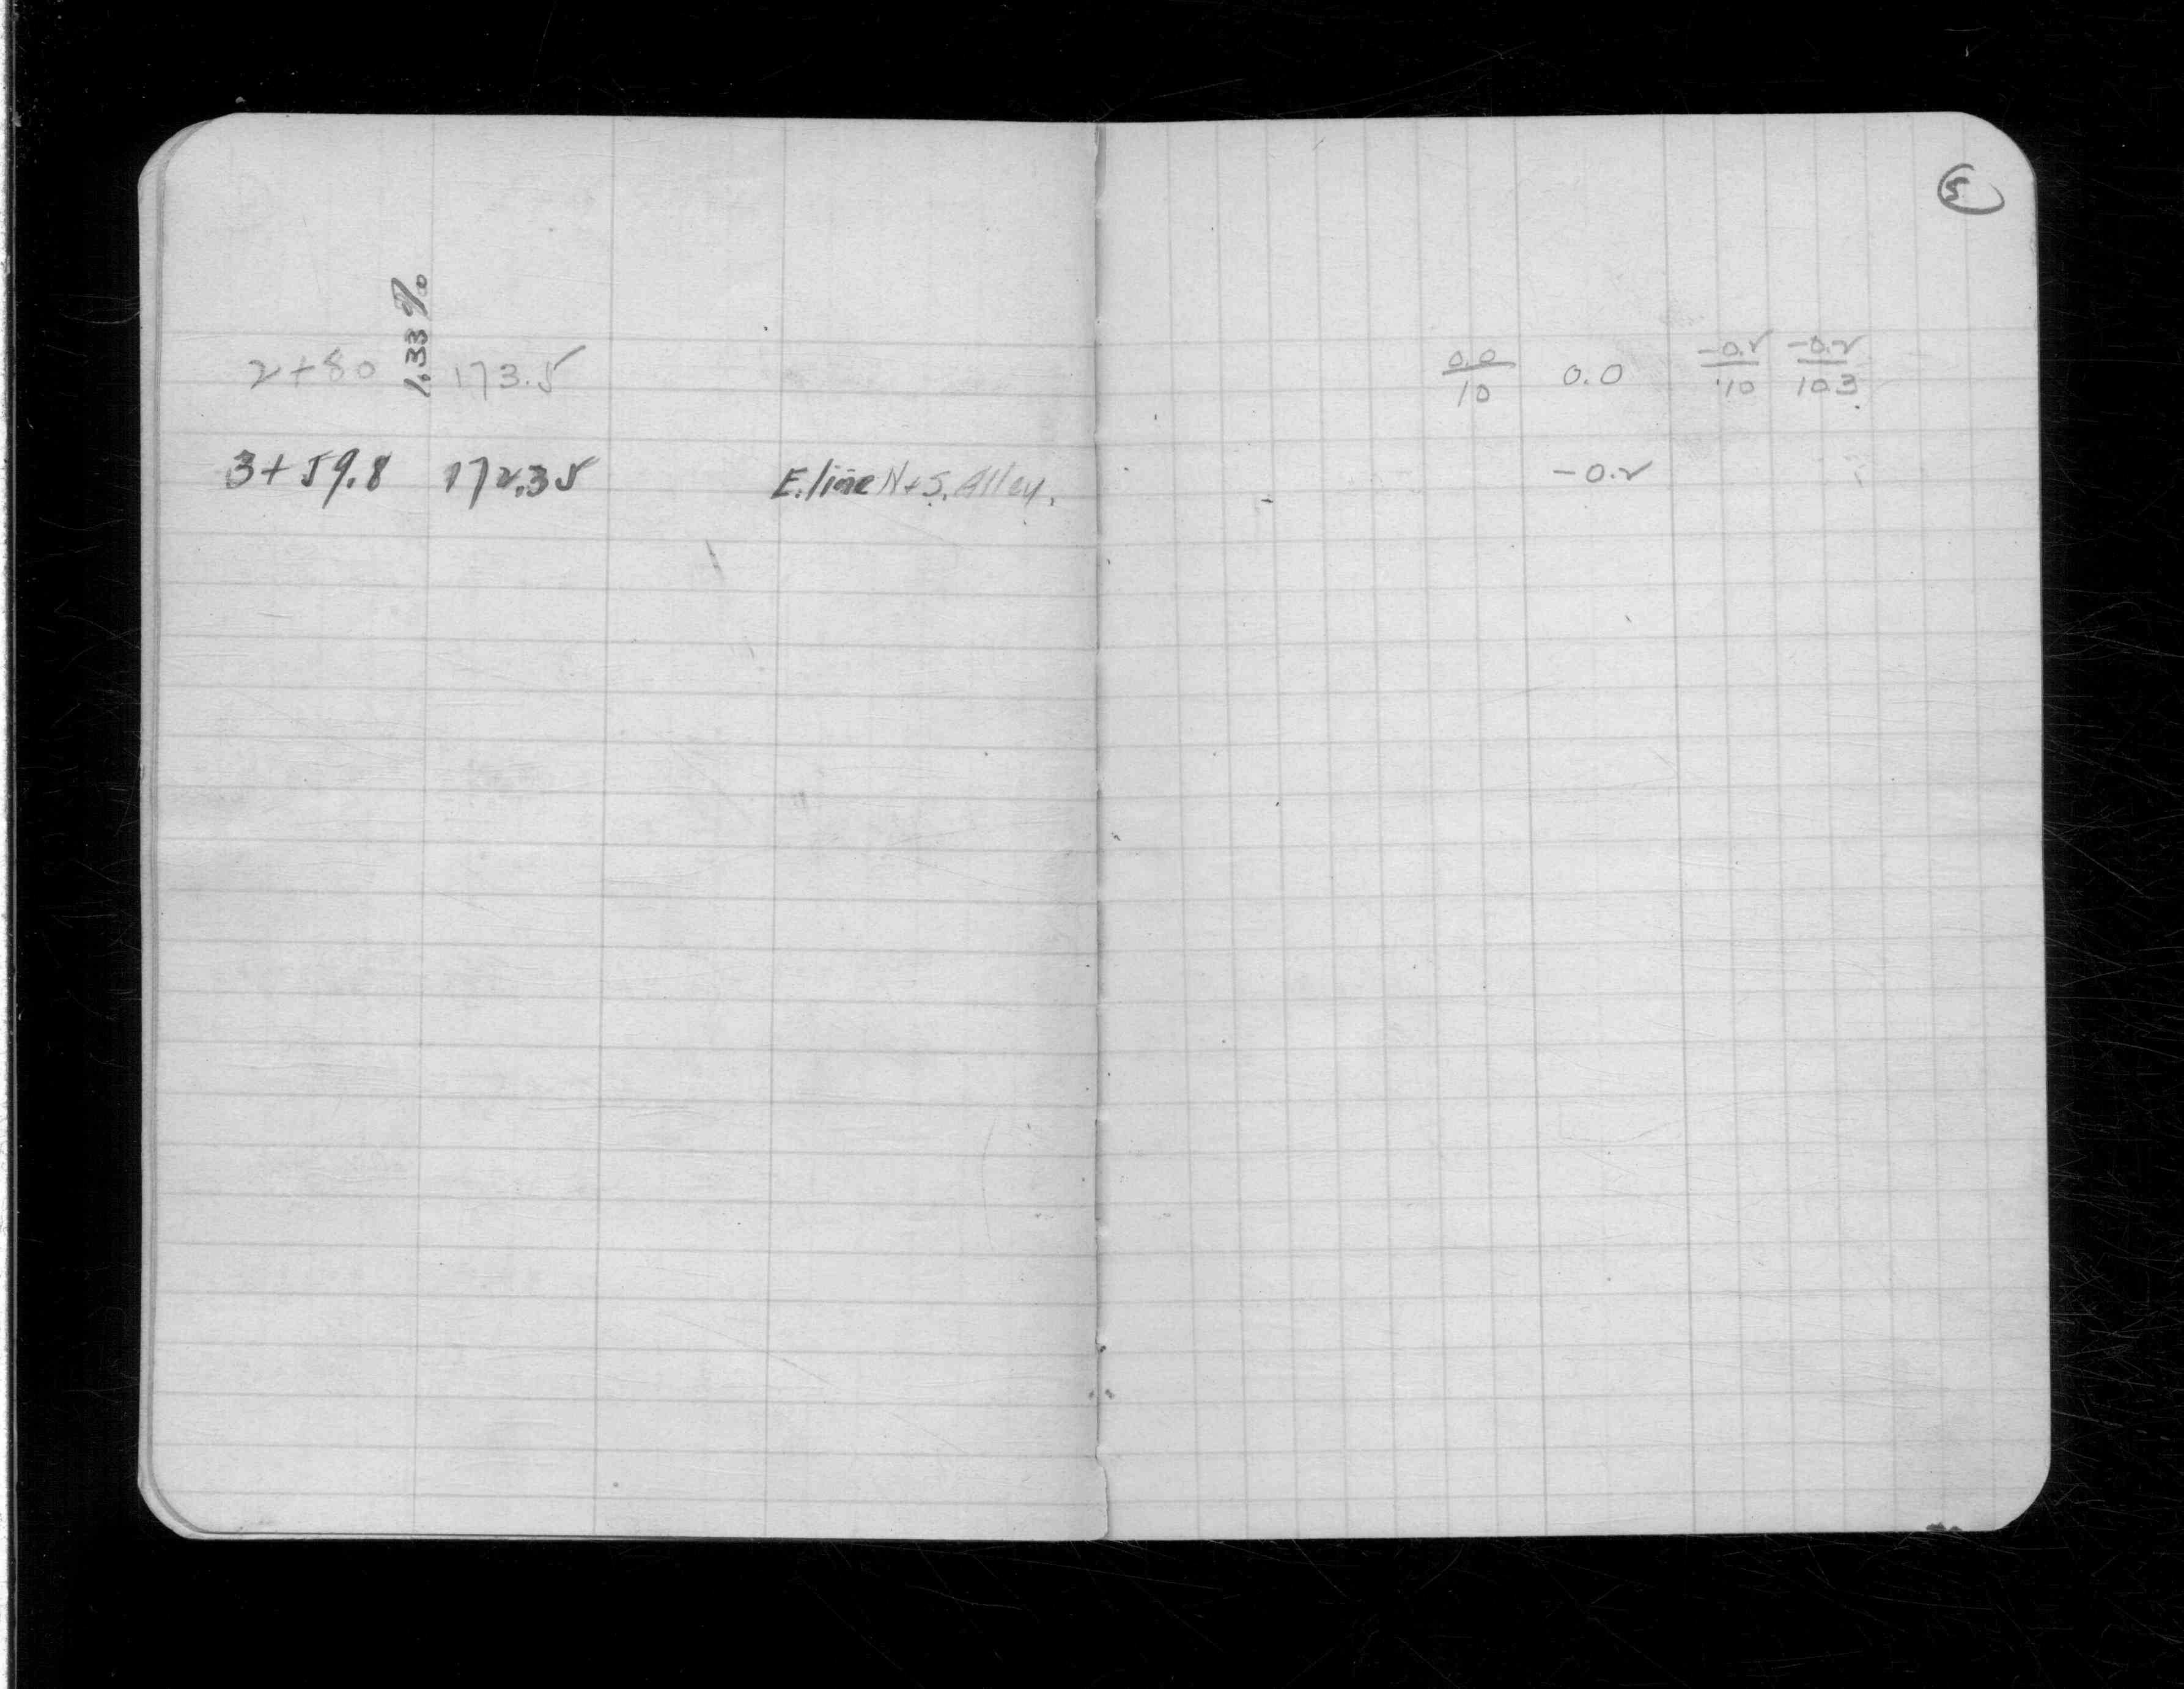 5
1.33%
2+80 173.5 0.0/10 0.0 -0.2/10 -0.2/10.3
3+59.8 172.35 E. line N+S. Alley. -0.2